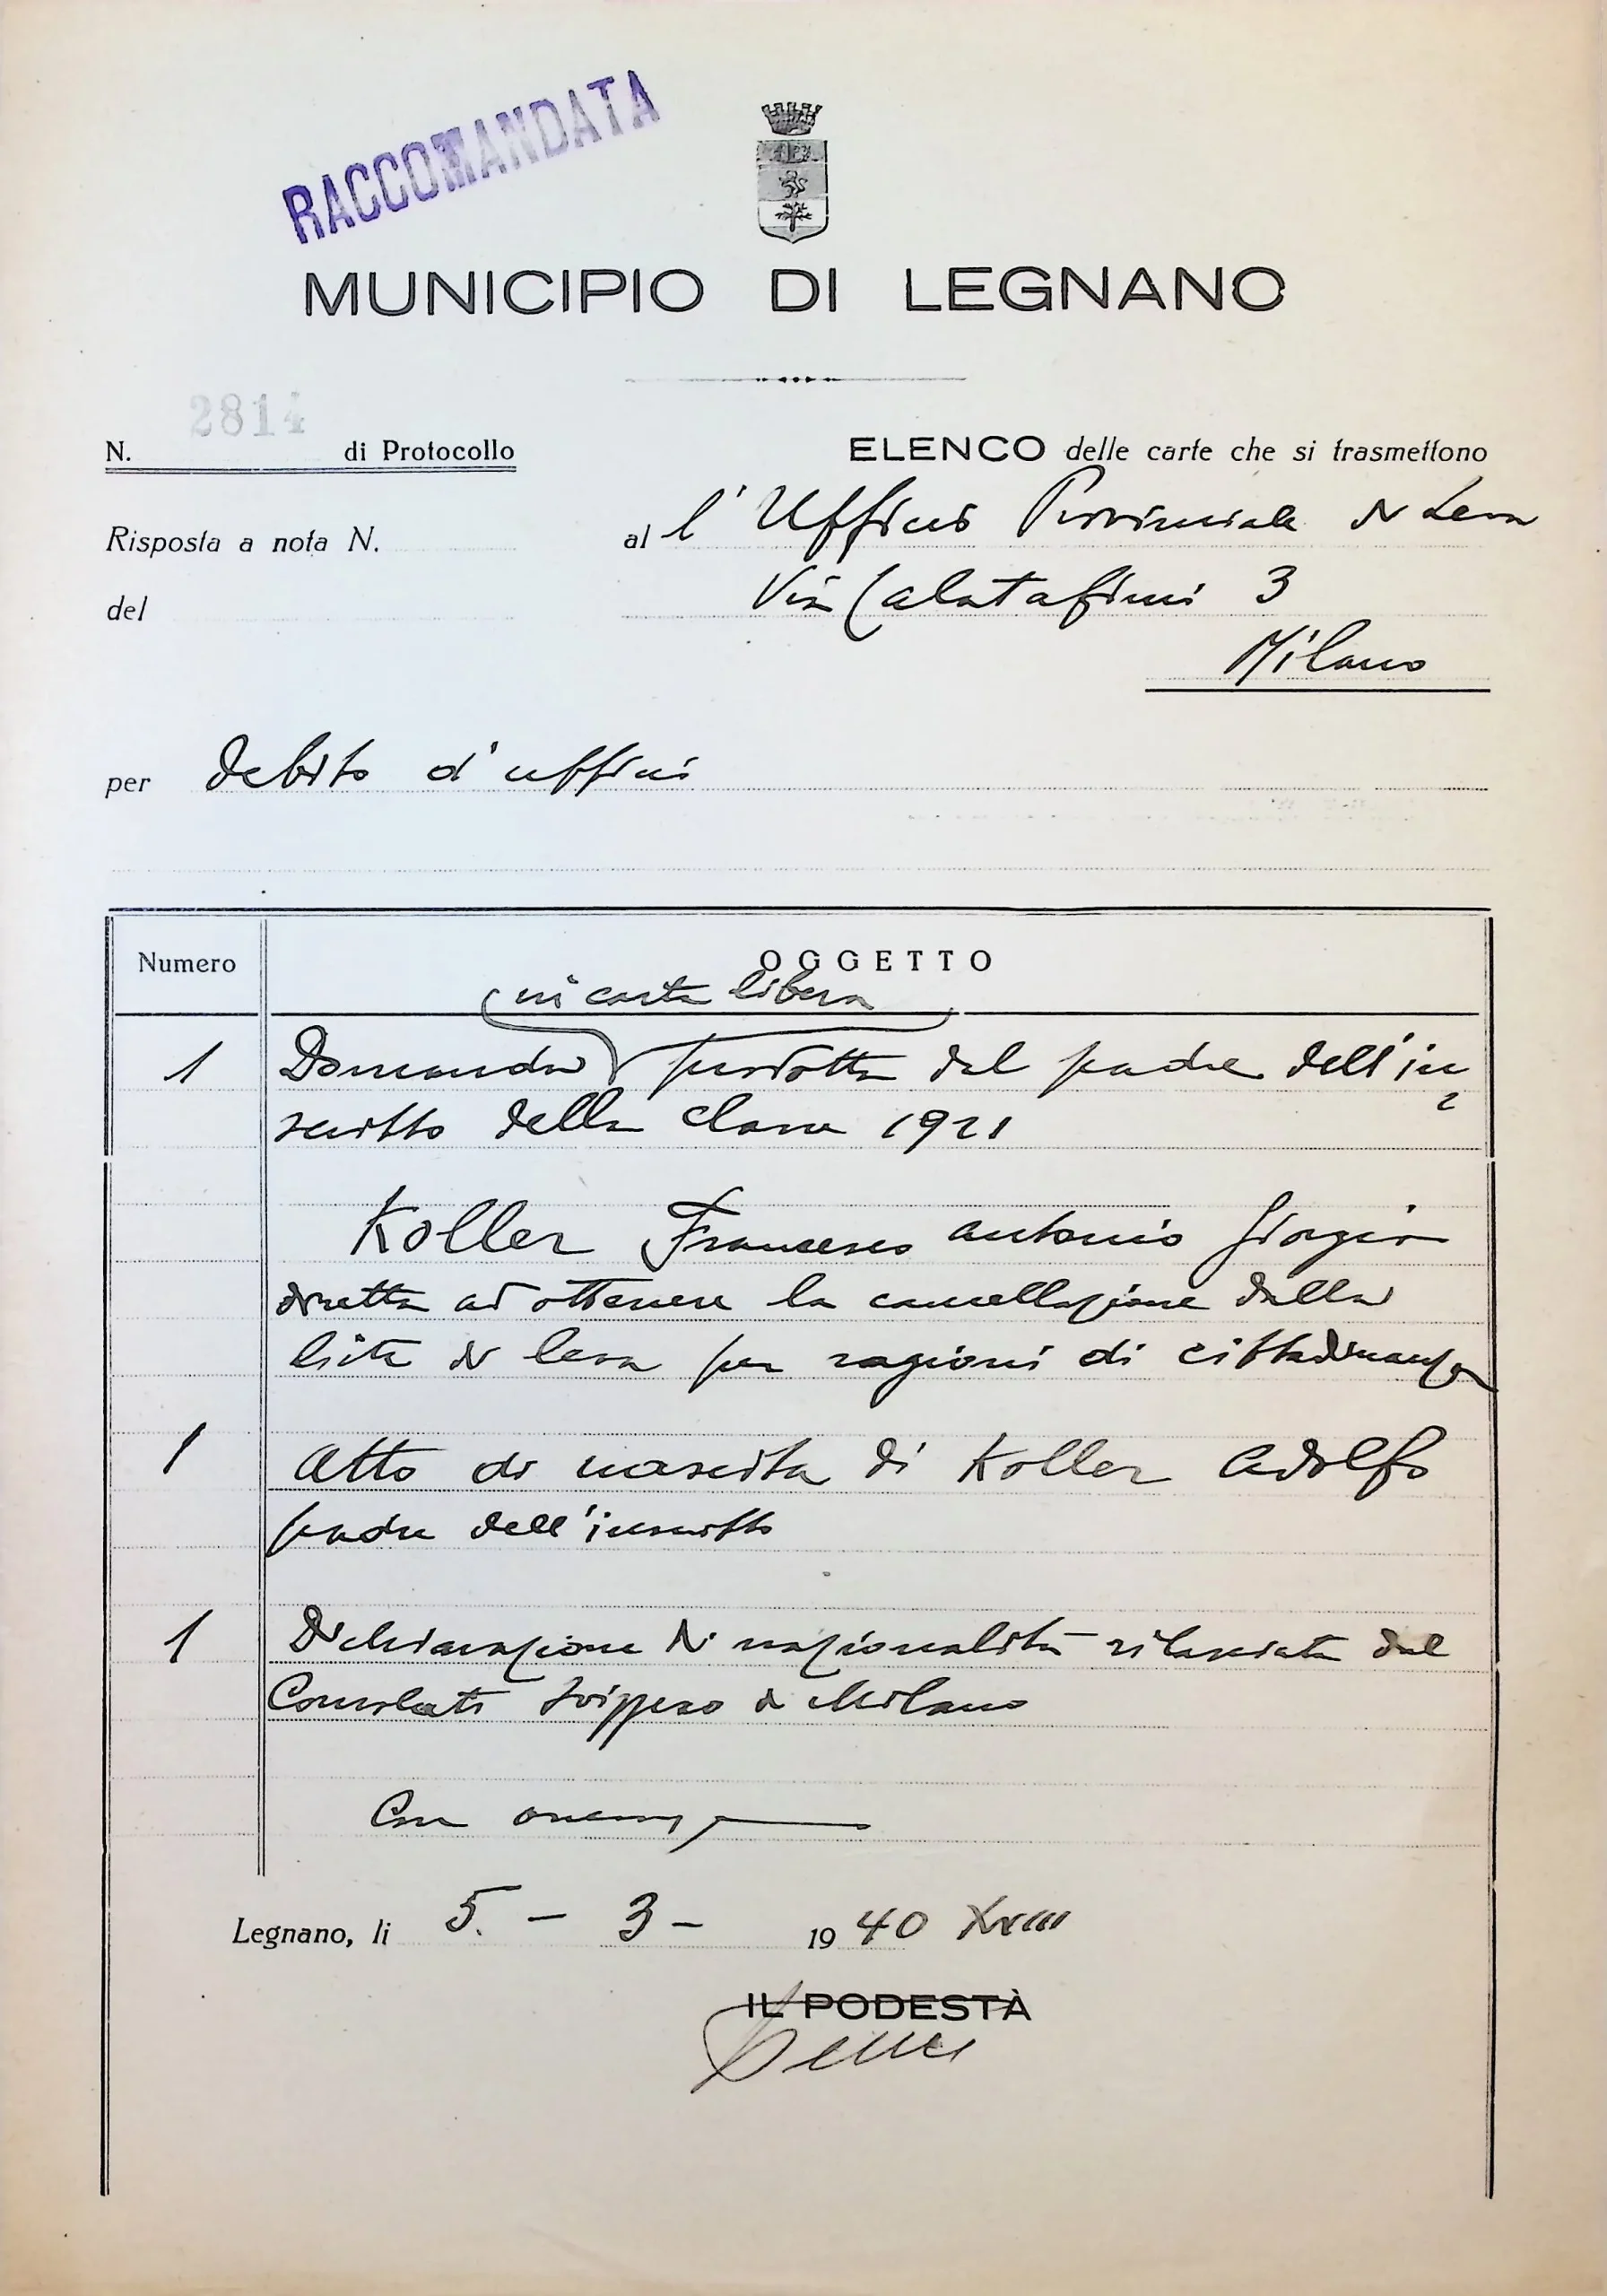 RACCOMANDATA
MUNICIPIO DI LEGNANO
2814
N. di Protocollo
ELENCO delle carte che si trasmettono
Risposta a nota N.
al l'Ufficio Provinciale di Leva
del
Via Calatafimi 3
Milano
per debito d'ufficio
Numero
OGGETTO
in carta libera
1 Domanda prodotta dal padre dell'in
scritto della classe 1921
Koller Francesco Antonio Giorgio
diretta ad ottenere la cancellazione dalla
lista di leva per ragioni di cittadinanza
1 Atto di nascita di Koller Adolfo
padre dell'inscritto
1 Dichiarazione di nazionalità rilasciata dal
Consolato Svizzero di Milano
Con osservanza
Legnano, li 5. - 3 - 1940 XVIII
IL PODESTÀ